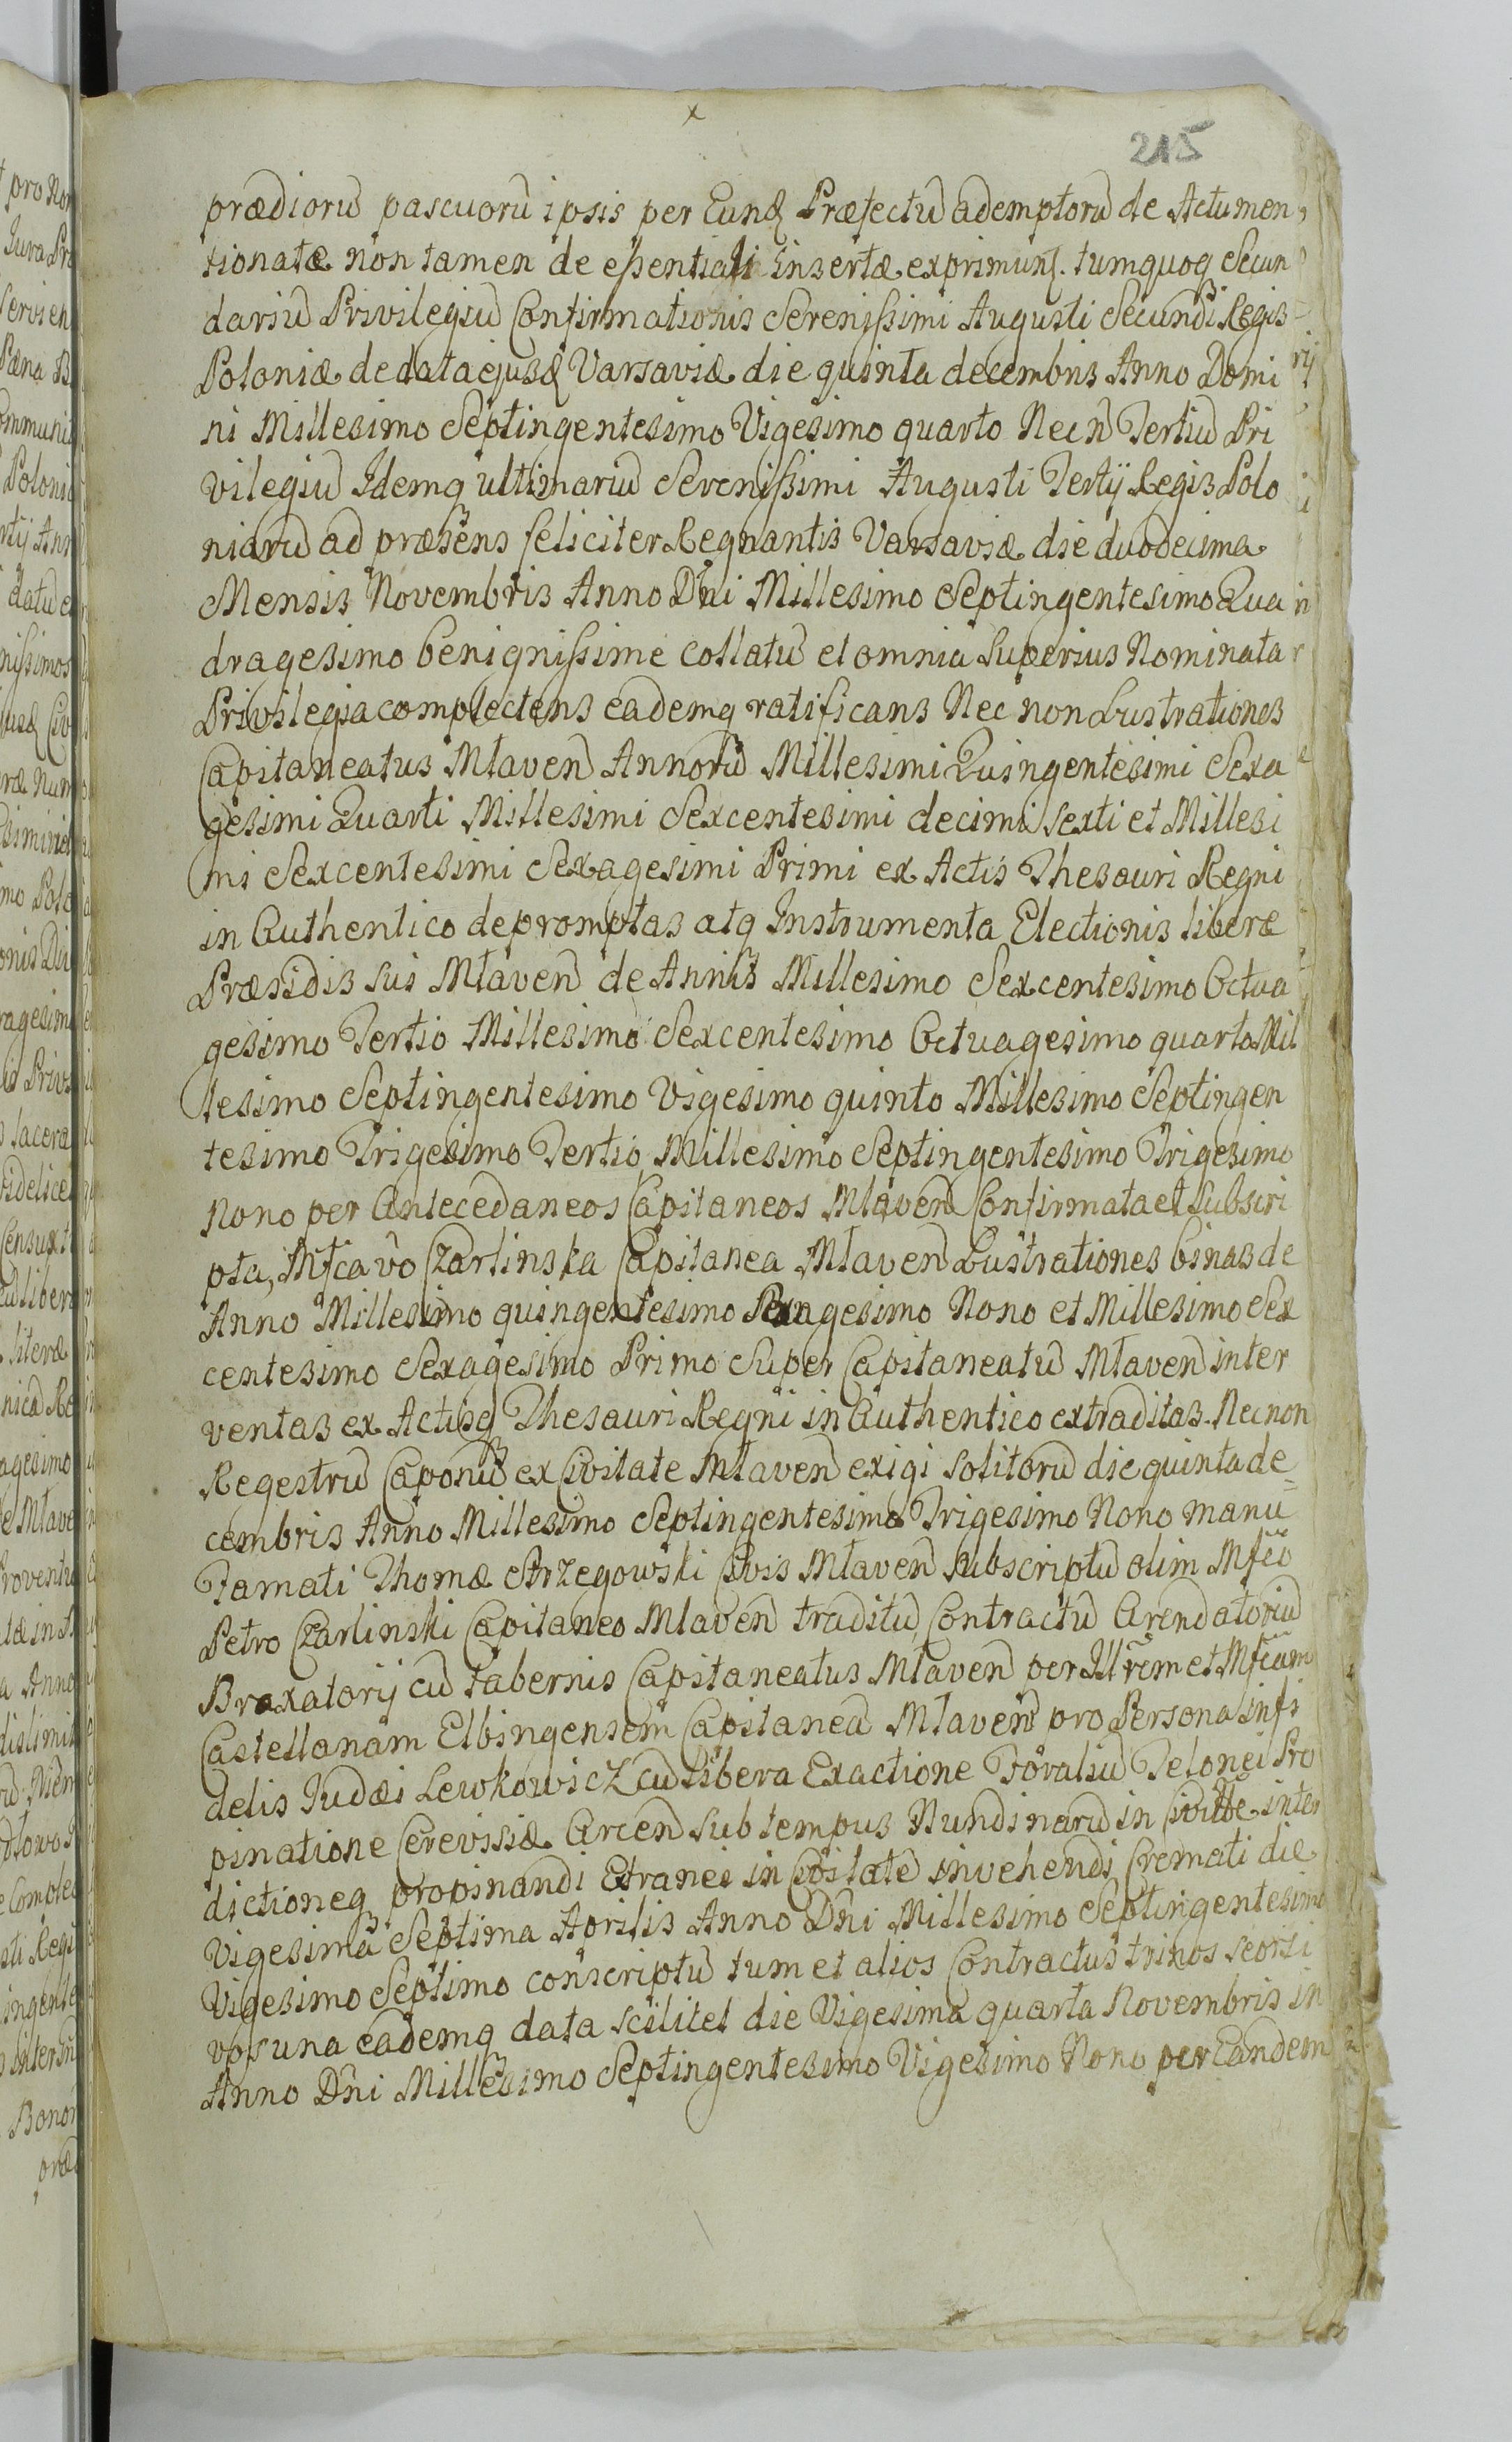 x
215
prædiorū pascuorū ipsis per Eunđ Præfectū ademptorū de Actu men
tionatæ non tamen de eſsentiali insertæ exprimunt. tumquoq Secun
dariū Privilegiū Confirmationis Sereniſsimi Augusti Secundi Regis
Poloniæ de data ejusđ Varsaviæ die quinta decembris Anno Domi
ni Millesimo Septingentesimo Vigesimo quarto Necn̄ Tertiū Pri
vilegiū Idemq ultimariū Sereniſsimi Augusti Tertij Regis Polo
niarū ad præsens feliciter Regnantis Varsaviæ die duodecima
Mensis Novembris Anno Dni Millesimo Septingentesimo Qua
dragesimo benigniſsime collatū et omnia Superius Nominata
Privilegia complectens eademq ratificans Nec non Lustrationes
Capitaneatus Mlaven̄ Annorū Millesimi Quingentesimi Sexa
gesimi Quarti Millesimi Sexcentesimi decimi Sexti et Millesi
mi Sexcentesimi Sexagesimi Primi ex Actis Thesauri Regni
in Authentico depromptas atq Instrumenta Electionis liberæ
Præsidis sui Mlaven̄ de Annis Millesimo Sexcentesimo Octua
gesimo Tertio Millesimo Sexcentesimo Octuagesimo quarto Mil
lesimo Septingentesimo Vigesimo quinto Millesimo Septingen
tesimo Trigesimo Tertio Millesimo Septingentesimo Trigesimo
Nono per Antecedaneos Capitaneos Mlaven̄ Confirmata et Subscri
pta, Mfca vō Czarlinska Capitanea Mlaven̄ Lustrationes binas de
Anno Millesimo quingentesimo Sexagesimo Nono et Millesimo Sex
centesimo Sexagesimo Primo Super Capitaneatū Mlaven̄ inter
ventas ex Actisq Thesauri Regni in Authentico extraditas. Necnon
Regestrū Caponū ex Civitate Mlaven̄ exigi solitorū die quinta de
cembris Anno Millesimo Septingentesimo Trigesimo Nono manu
Famati Thomæ Strzegowski Civis Mlaven̄ Subscriptū olim Mfco
Petro Czarlinski Capitaneo Mlaven̄ traditū Contractū Arendatoriū
Braxatorij cū tabernis Capitaneatus Mlaven̄ per Illrem et Mfcam
Castellanam Elbingensem Capitaneā Mlaven̄ pro Persona infi
delis Judæi Lewkowicz cū libera Exactione Foraliū Telonei Pro
pinatione Cerevisiæ Arcen̄ sub tempus Nundinarū in Civitte inter
dictioneq propinandi Extranei in Civitatē invehendi Cremati die
Vigesima Septima Aprilis Anno Dni Millesimo Septingentesimo
Vigesimo Septimo conscriptū tum et alios Contractus trinos seorsi
vos una eademq data scilicet die Vigesima quarta Novembris in
Anno Dni Millesimo Septingentesimo Vigesimo Nono per Eandem